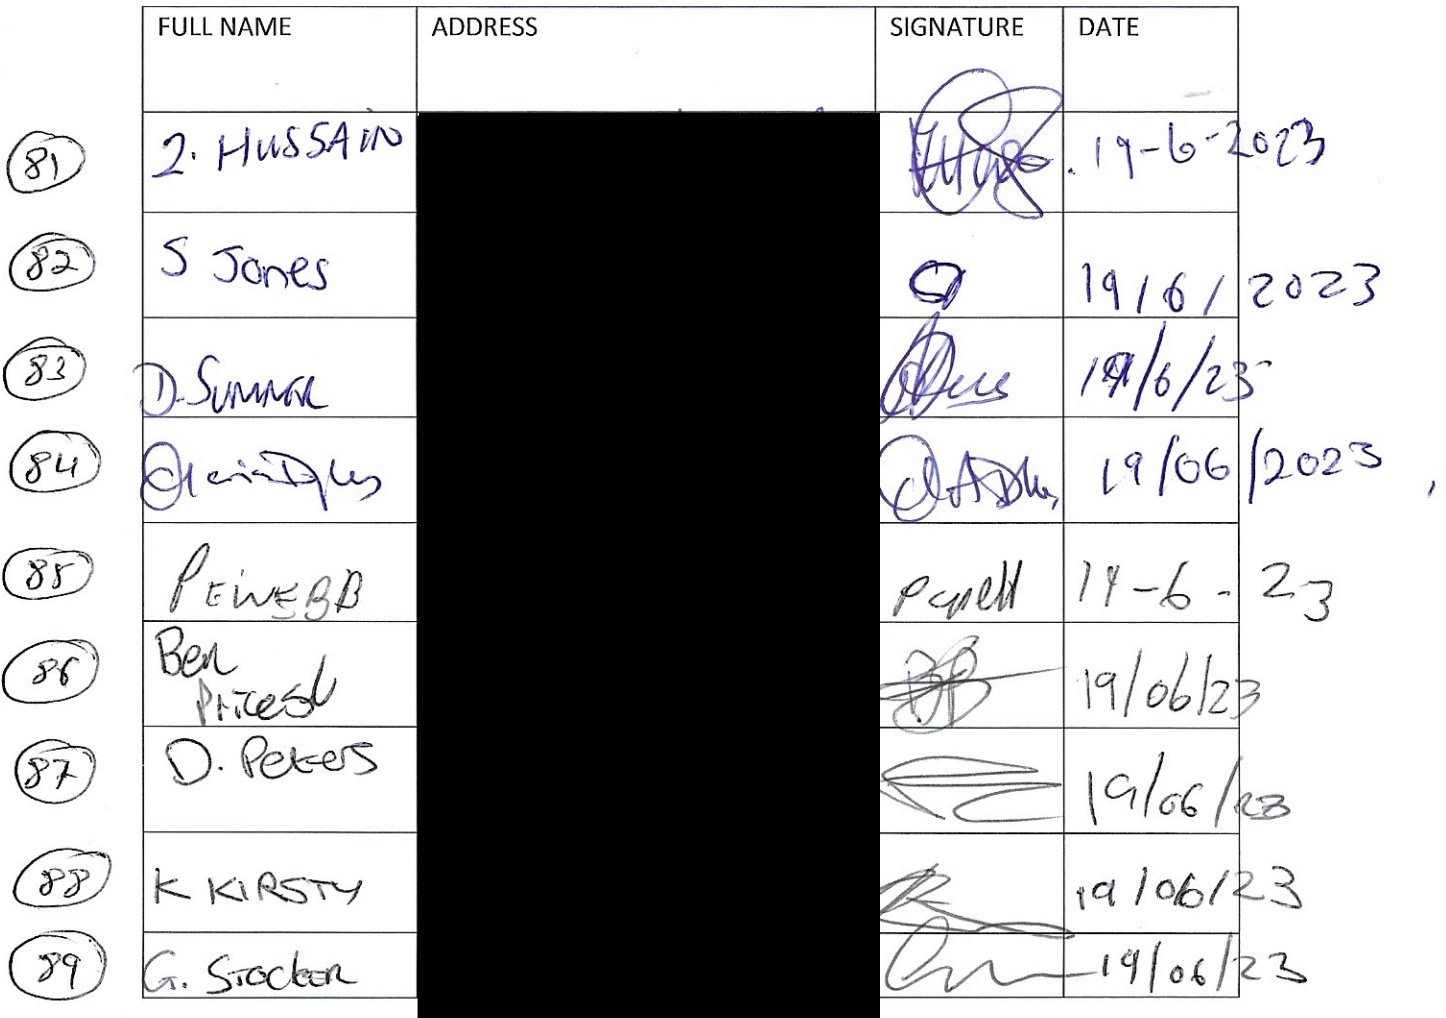 FULL NAME ADDRESS SIGNATURE DATE
81 Z. HUSSAIN 19-6-2023
82 S Jones 19/6/2023
83 D. SUMNER 19/6/23
84 19/06/2023
85 P E WEBB 19-6-23
86 Ben 19/06/23
87 D. Peters 19/06/23
88 K KIRSTY 19/06/23
89 G. STOCKER 19/06/23